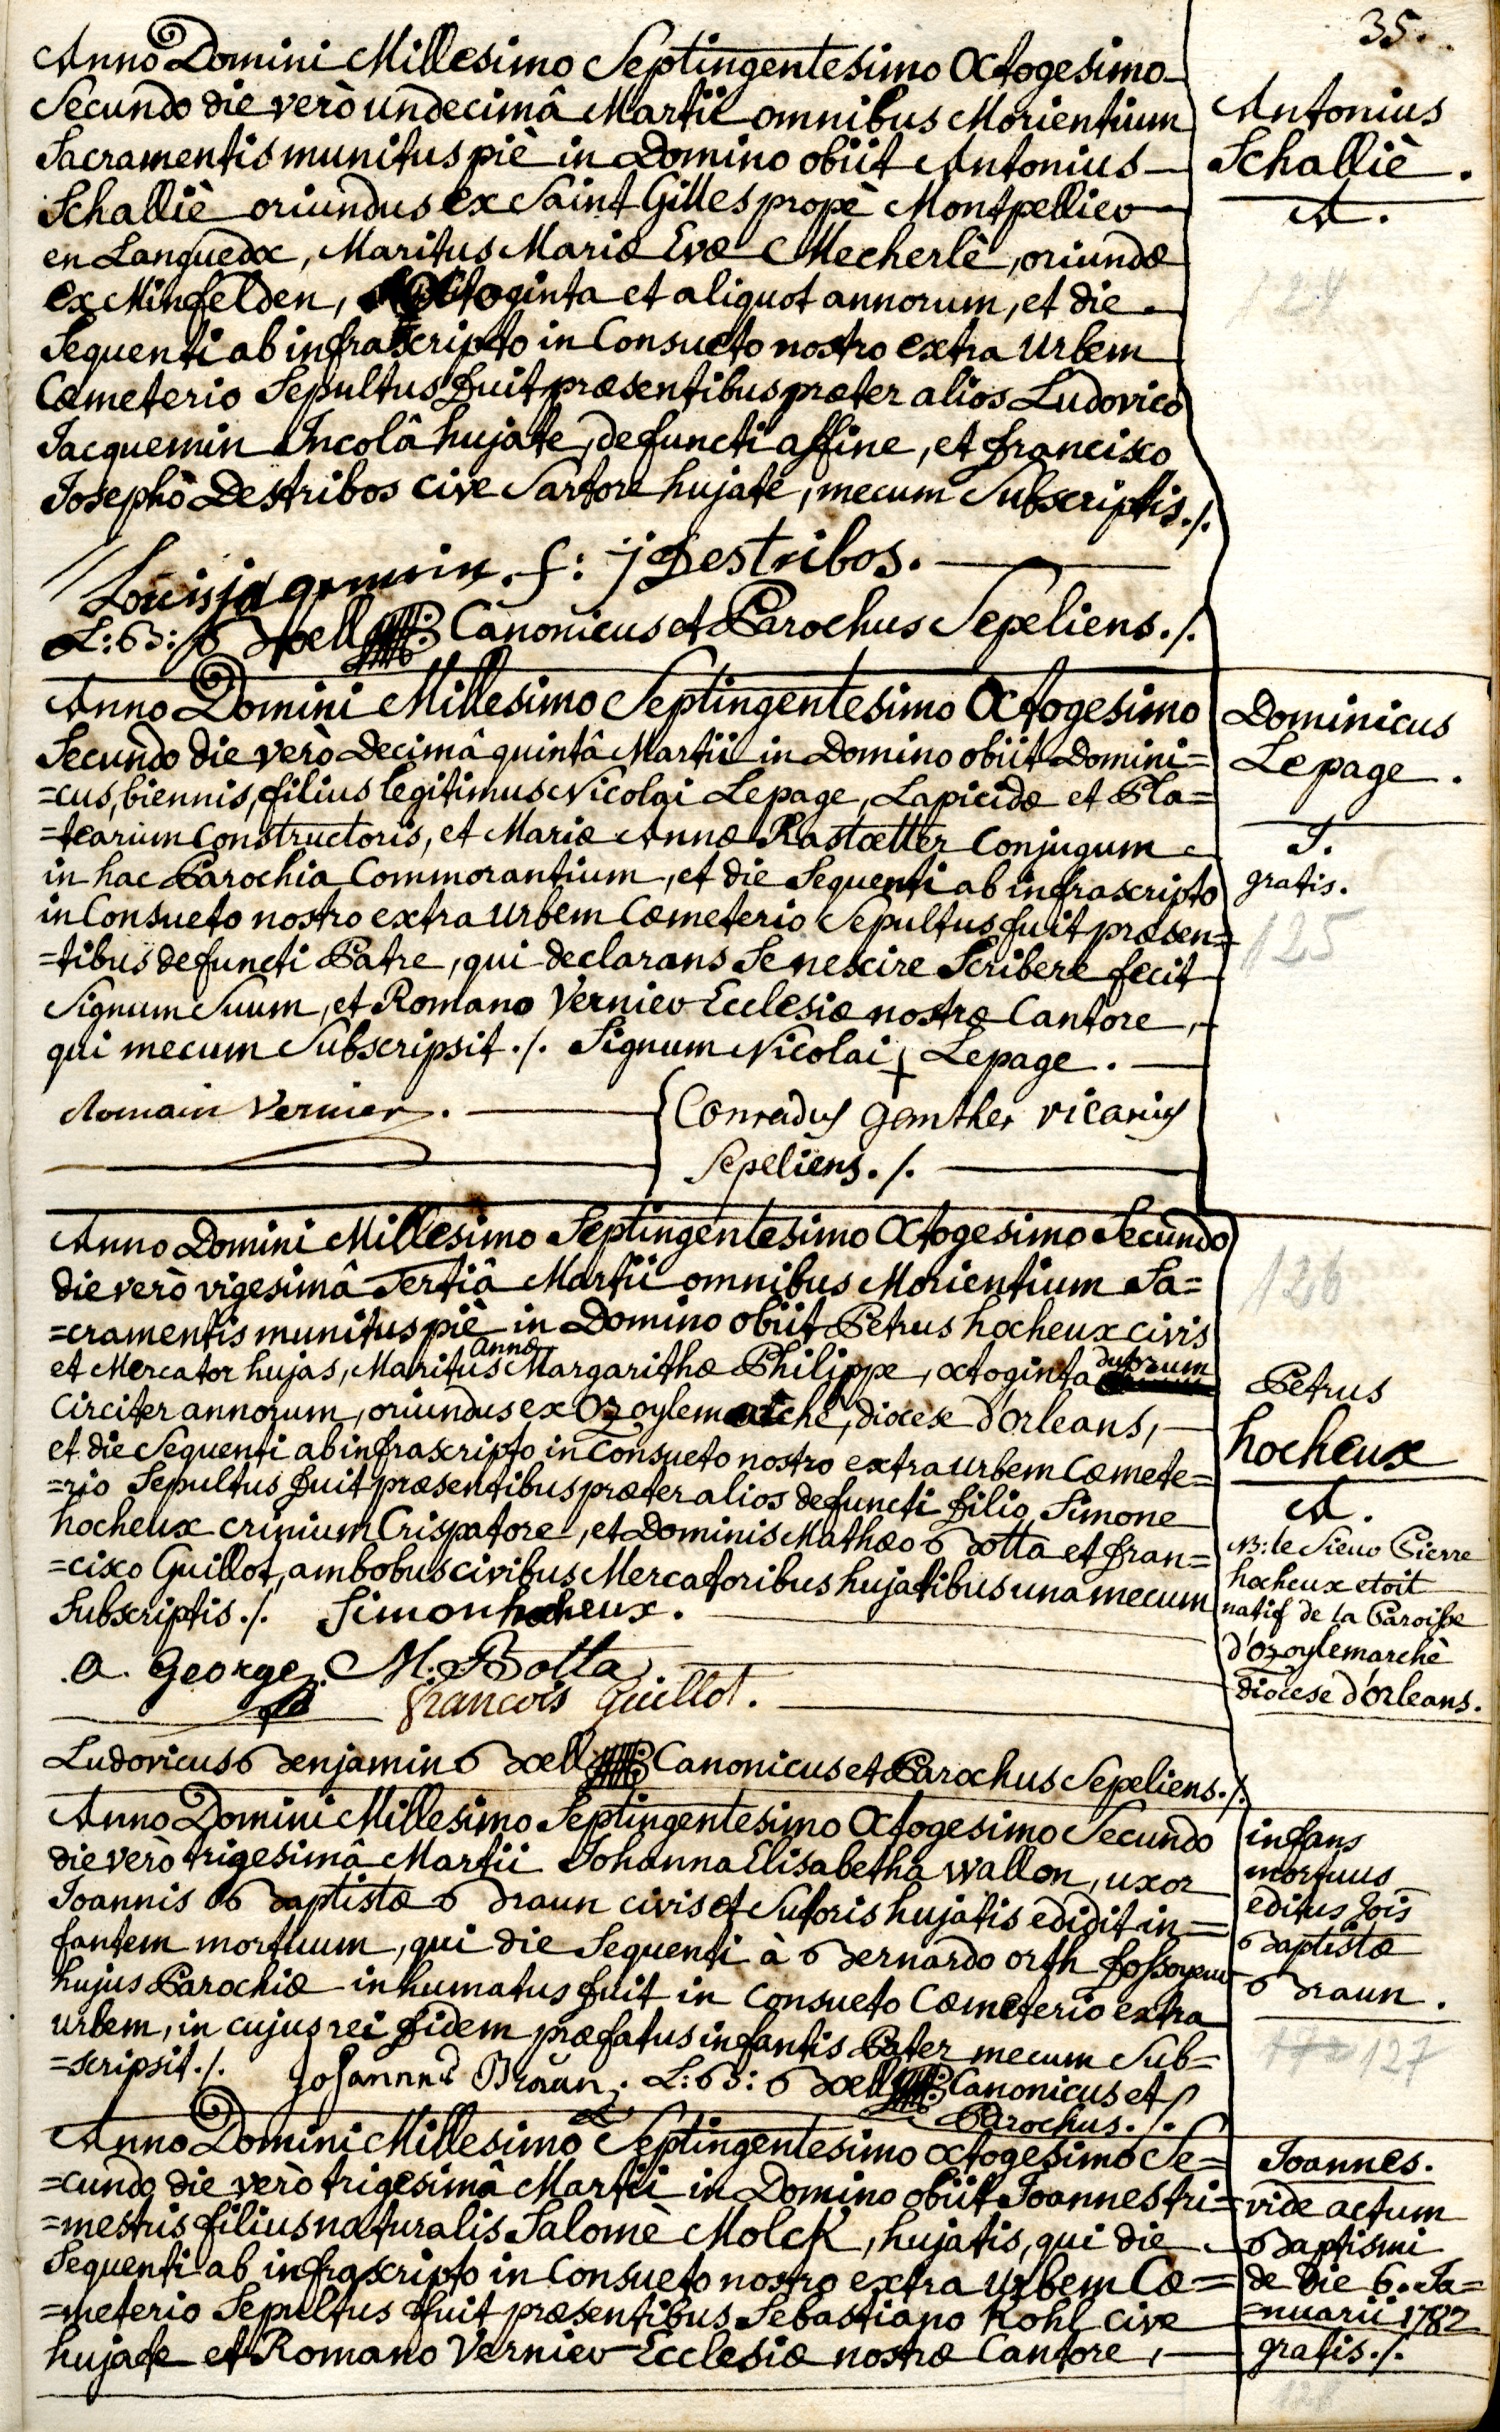 35.
Anno Domini Millesimo Septingentesimo Octogesimo
Secundo die verò undecimâ Martii omnibus Morientium
Sacramentis munitus piè in Domino obiit Antonius
Schalliè oriundus ex Saint Gilles propè Montpellier
en Languedoc, Maritus Mariæ Evæ Mecherlè, oriundæ
ex Minfelden, Octoginta et aliquot annorum, et die
Sequenti ab infrascripto in Consueto nostro extra Urbem
Cœmeterio Sepultus fuit præsentibus præter alios Ludovico
Jacquemin Incolâ hujate, defuncti affine, et francisco
Josepho Destribos cive Sartore hujate, mecum Subscriptis./.
Louis jaqemin. f: j Destribos.
L: B: Boell Canonicus et Parochus Sepeliens./.
Antonius
Schalliè.
A.
124
Anno Domini Millesimo Septingentesimo Octogesimo
Secundo die verò Decimâ quintâ Martii in Domino obiit Domini=
=cus, biennis, filius legitimus Nicolai Lepage, Lapicidæ et Pla=
=tearum Constructoris, et Mariæ Annæ Rastoetter Conjugum
in hac Parochia Commorantium, et die Sequenti ab infrascripto
in Consueto nostro extra Urbem Cœmeterio Sepultus fuit præsen=
=tibus defuncti Patre, qui declarans Se nescire Scribere fecit
Signum Suum, et Romano Vernier Ecclesiæ nostræ Cantore,
qui mecum Subscripsit./. Signum Nicolai + Lepage.
Romain Vernier.
Conradus Ganther vicarius
Sepeliens./.
Dominicus
Lepage.
S.
gratis.
125
Anno Domini Millesimo Septingentesimo Octogesimo Secundo
die verò vigesimâ Tertiâ Martii omnibus Morientium Sa=
=cramentis munitus piè in Domino obiit Petrus hocheux civis
et Mercator hujas, Maritus Annæ Margarithæ Philippe, octoginta duorum
Circiter annorum, oriundus ex Ozoylemarché, diocese d'orleans,
et die Sequenti ab infrascripto in Consueto nostro extra urbem Cœmete=
=rio Sepultus fuit præsentibus præter alios defuncti filio Simone
hocheux crinium Crispatore, et Dominis Mathæo Botta et fran=
=cisco Guillot, ambobus civibus Mercatoribus hujatibus una mecum
Subscriptis./. Simon hocheux.
a. George. M. Botta
francois Guillot.
Ludovicus Benjamin Boell Canonicus et Parochus Sepeliens./.
126
Petrus
hocheux
A.
NB: le Sieur Pierre
hocheux etoit
natif de la Paroisse
d'ozoylemarchè
diocese d'orleans.
Anno Domini Millesimo Septingentesimo Octogesimo Secundo
die verò trigesimâ Martii Johanna Elisabetha Wallon, uxor
Joannis Baptistæ Braun civis et Sutoris hujatis edidit in=
fantem mortuum, qui die Sequenti à Bernardo orth fossoyeur
hujus Parochiæ inhumatus fuit in Consueto Cœmeterio extra
urbem, in cujus rei fidem præfatus infantis Pater mecum Sub=
=scripsit./. Johannes Braun. L: B: Boell Canonicus et
Parochus./.
infans
mortuus
editus Jois
Baptistæ
Braun.
127
Anno Domini Millesimo Septingentesimo octogesimo Se=
=cundo die verò trigesimâ Martii in Domino obiit Joannes tri=
=mestris filius naturalis Salomè Molck, hujatis, qui die
Sequenti ab infrascripto in Consueto nostro extra Urbem Cœ=
=meterio Sepultus fuit præsentibus Sebastiano Kohl cive
hujate et Romano Vernier Ecclesiæ nostræ Cantore,
Joannes.
vide actum
Baptismi
de die 6. Ja=
=nuarii 1782
gratis./.
128